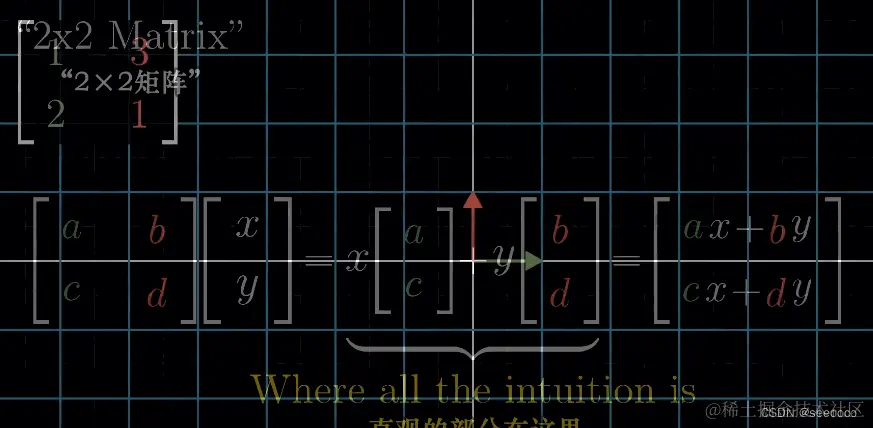 “2x2 Matrix”
1 3
“2×2矩阵”
2 1
[a b; c d] [x; y] = x [a; c] + y [b; d] = [ax+by; cx+dy]
Where all the intuition is
直观的部分在这里
@稀土掘金技术社区
CSDN @seeoooo